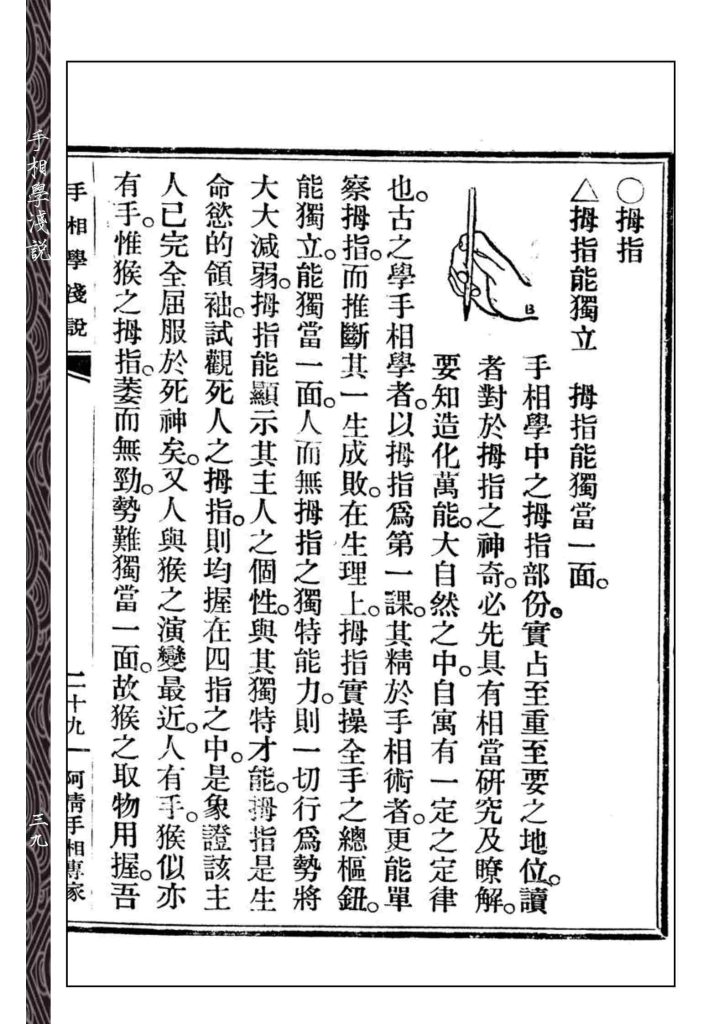 〇拇指
△拇指能獨立　拇指能獨當一面。
手相學中之拇指部份。實占至重至要之地位。讀
者對於拇指之神奇。必先具有相當研究及瞭解。
要知造化萬能。大自然之中。自寓有一定之定律
也。古之學手相學者。以拇指爲第一課。其精於手相術者。更能單
察拇指。而推斷其一生成敗。在生理上。拇指實操全手之總樞鈕。
能獨立。能獨當一面。人而無拇指之獨特能力。則一切行爲勢將
大大減弱。拇指能顯示其主人之個性。與其獨特才能。拇指是生
命慾的領袖。試觀死人之拇指。則均握在四指之中。是象證該主
人已完全屈服於死神矣。又人與猴之演變最近。人有手。猴似亦
有手。惟猴之拇指。萎而無勁。勢難獨當一面。故猴之取物用握。吾
B
手相學淺說
二十九
阿情手相專家
手相學淺説
三九